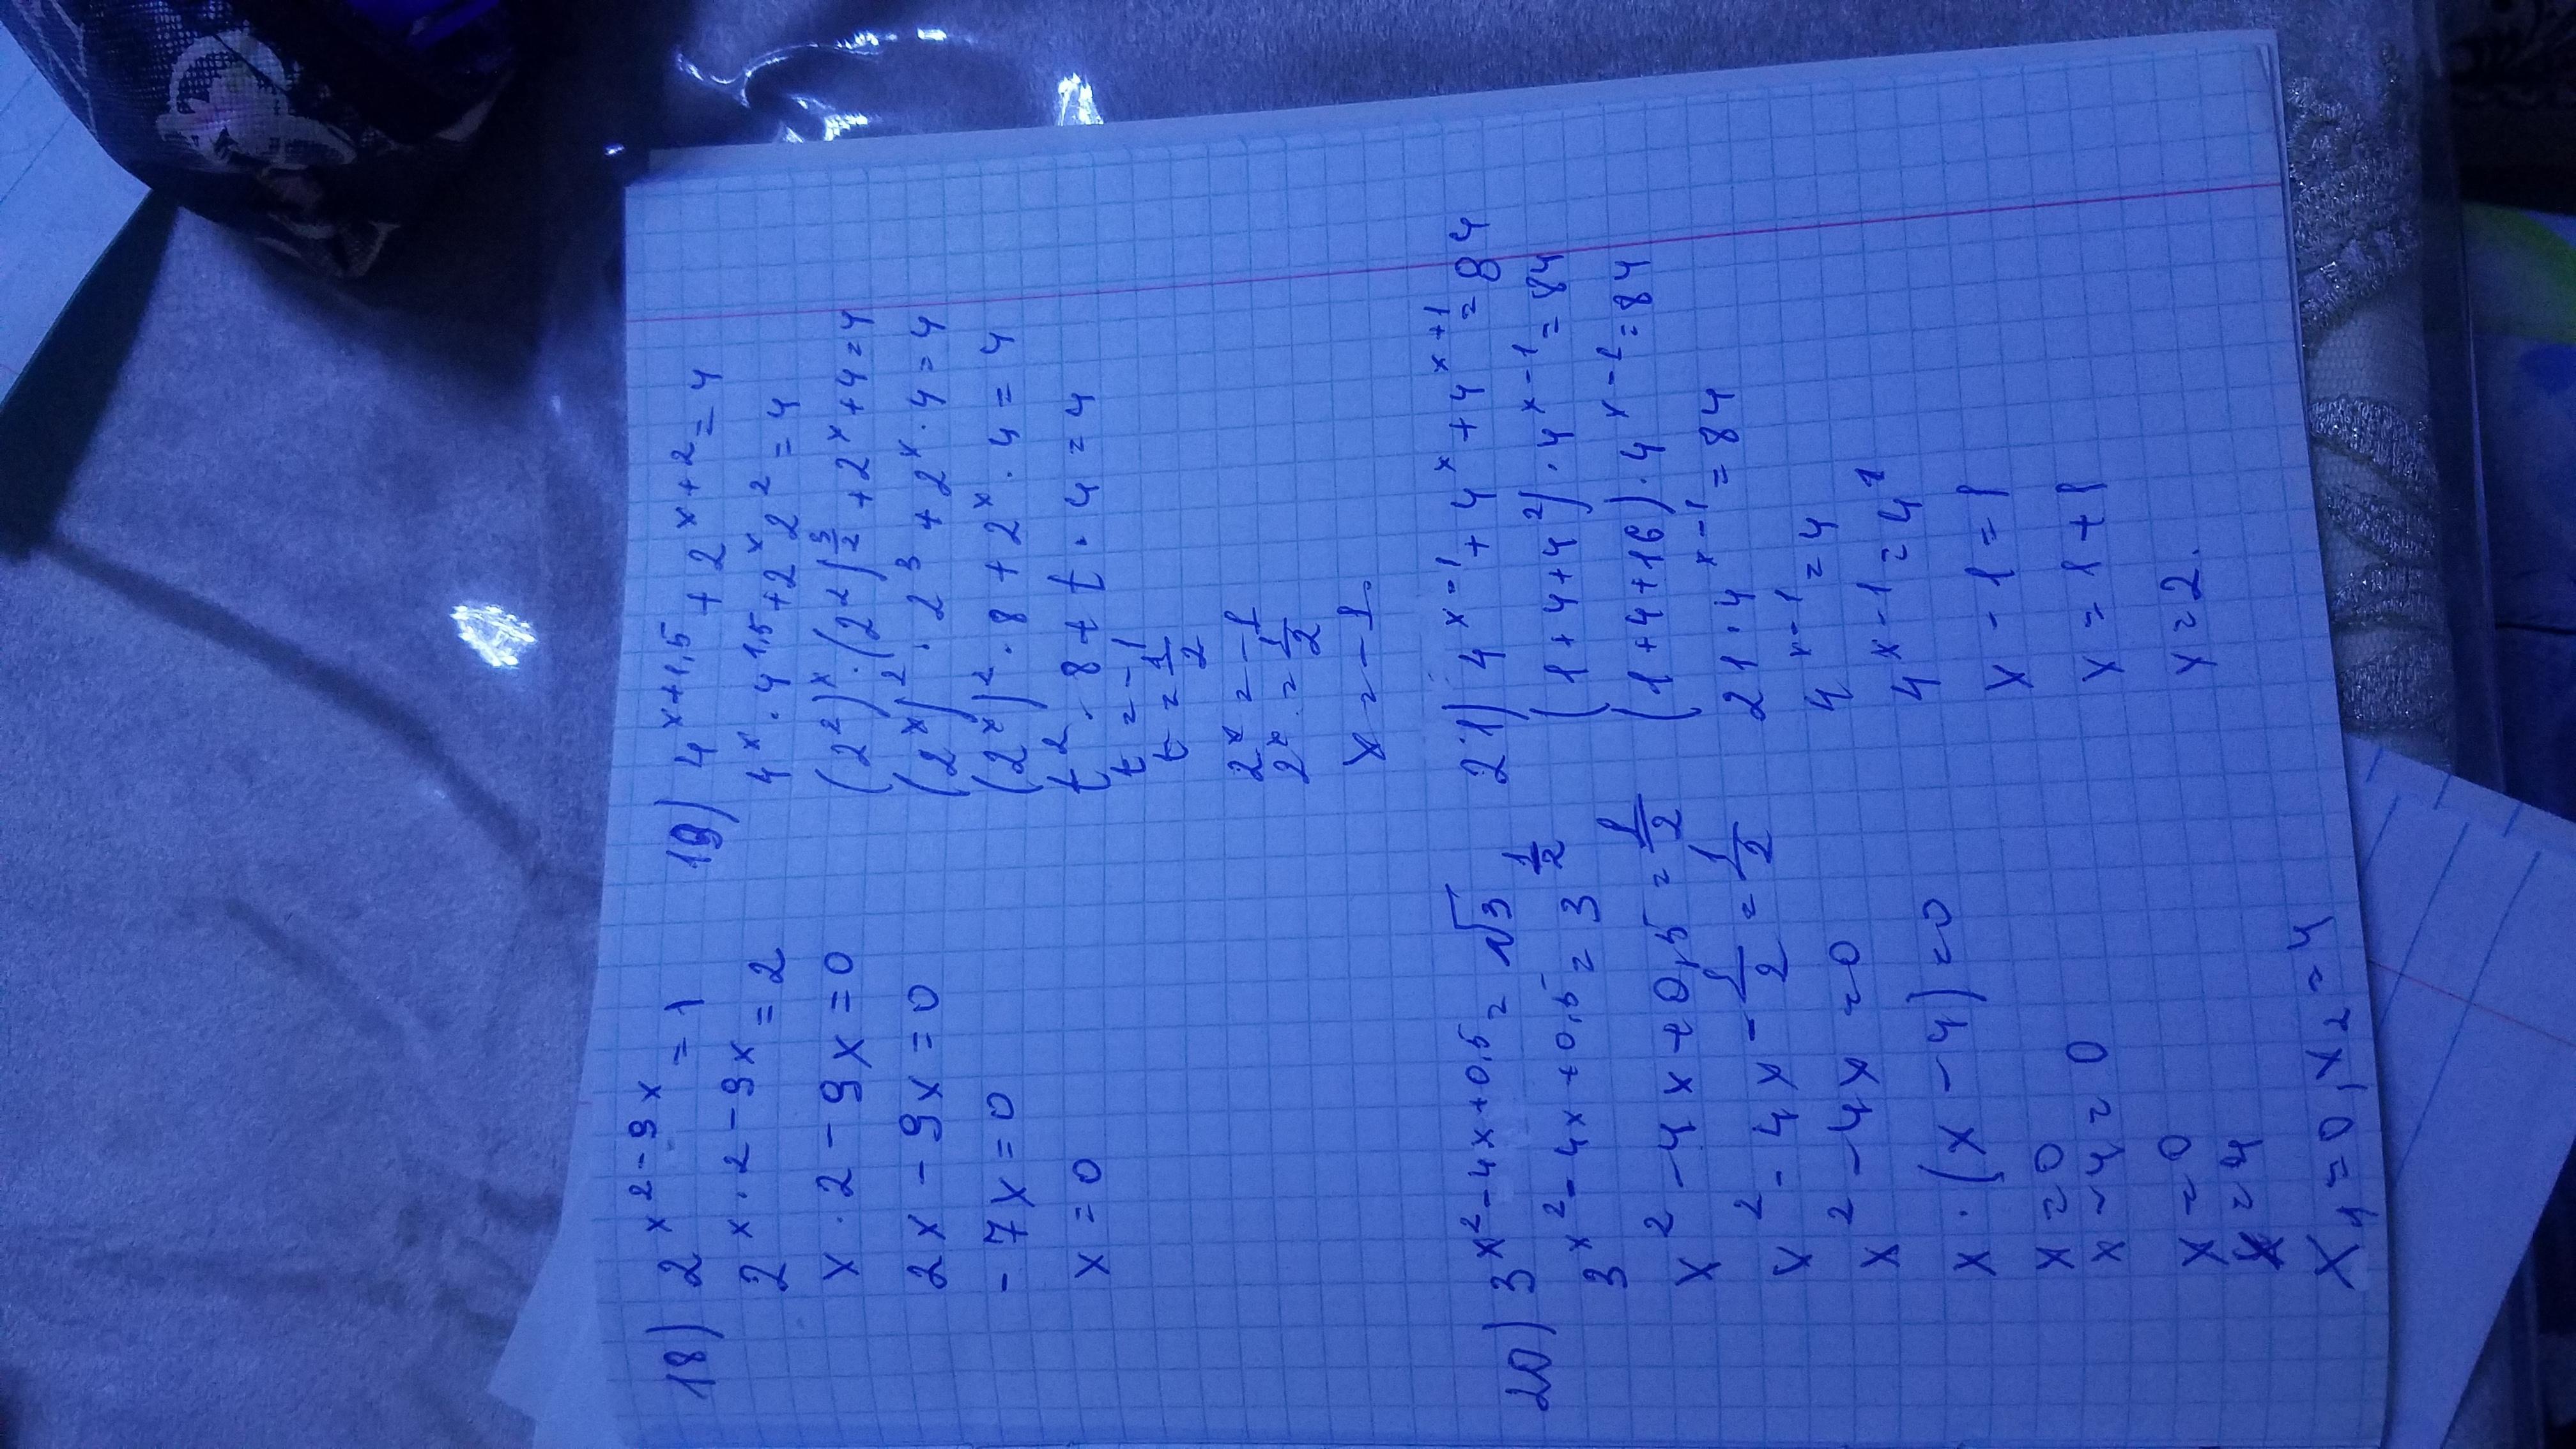 18) 2^{x^2-9x} = 1
2^{x·2-9x} = 2
x·2 - 9x = 0
2x - 9x = 0
-7x = 0
x = 0
19) 4^{x+1,5} + 2^{x+2} = 4
4^x · 4^{1,5} + 2^x 2^2 = 4
(2^2)^x · (2^2)^{\frac{3}{2}} + 2^x + 4 = 4
(2^x)^2 · 2^3 + 2^x · 4 = 4
(2^x)^2 · 8 + 2^x · 4 = 4
t^2 · 8 + t · 4 = 4
t = -1
t = \frac{1}{2}
2^x = -1
2^x = \frac{1}{2}
x = -1.
20) 3^{x^2-4x+0,5} = √3
3^{x^2-4x+0,5} = 3^{\frac{1}{2}}
x^2 - 4x + 0,5 = \frac{1}{2}
x^2 - 4x - \frac{1}{2} = \frac{1}{2}
x^2 - 4x = 0
x · (x - 4) = 0
x = 0
x - 4 = 0
x = 0
x = 4
x_1 = 0, x_2 = 4
21) 4^{x-1} + 4^x + 4^{x+1} = 84
(1 + 4 + 4^2) · 4^{x-1} = 84
(1 + 4 + 16) · 4^{x-1} = 84
21 · 4^{x-1} = 84
4^{x-1} = 4
4^{x-1} = 4^1
x - 1 = 1
x = 1 + 1
x = 2.